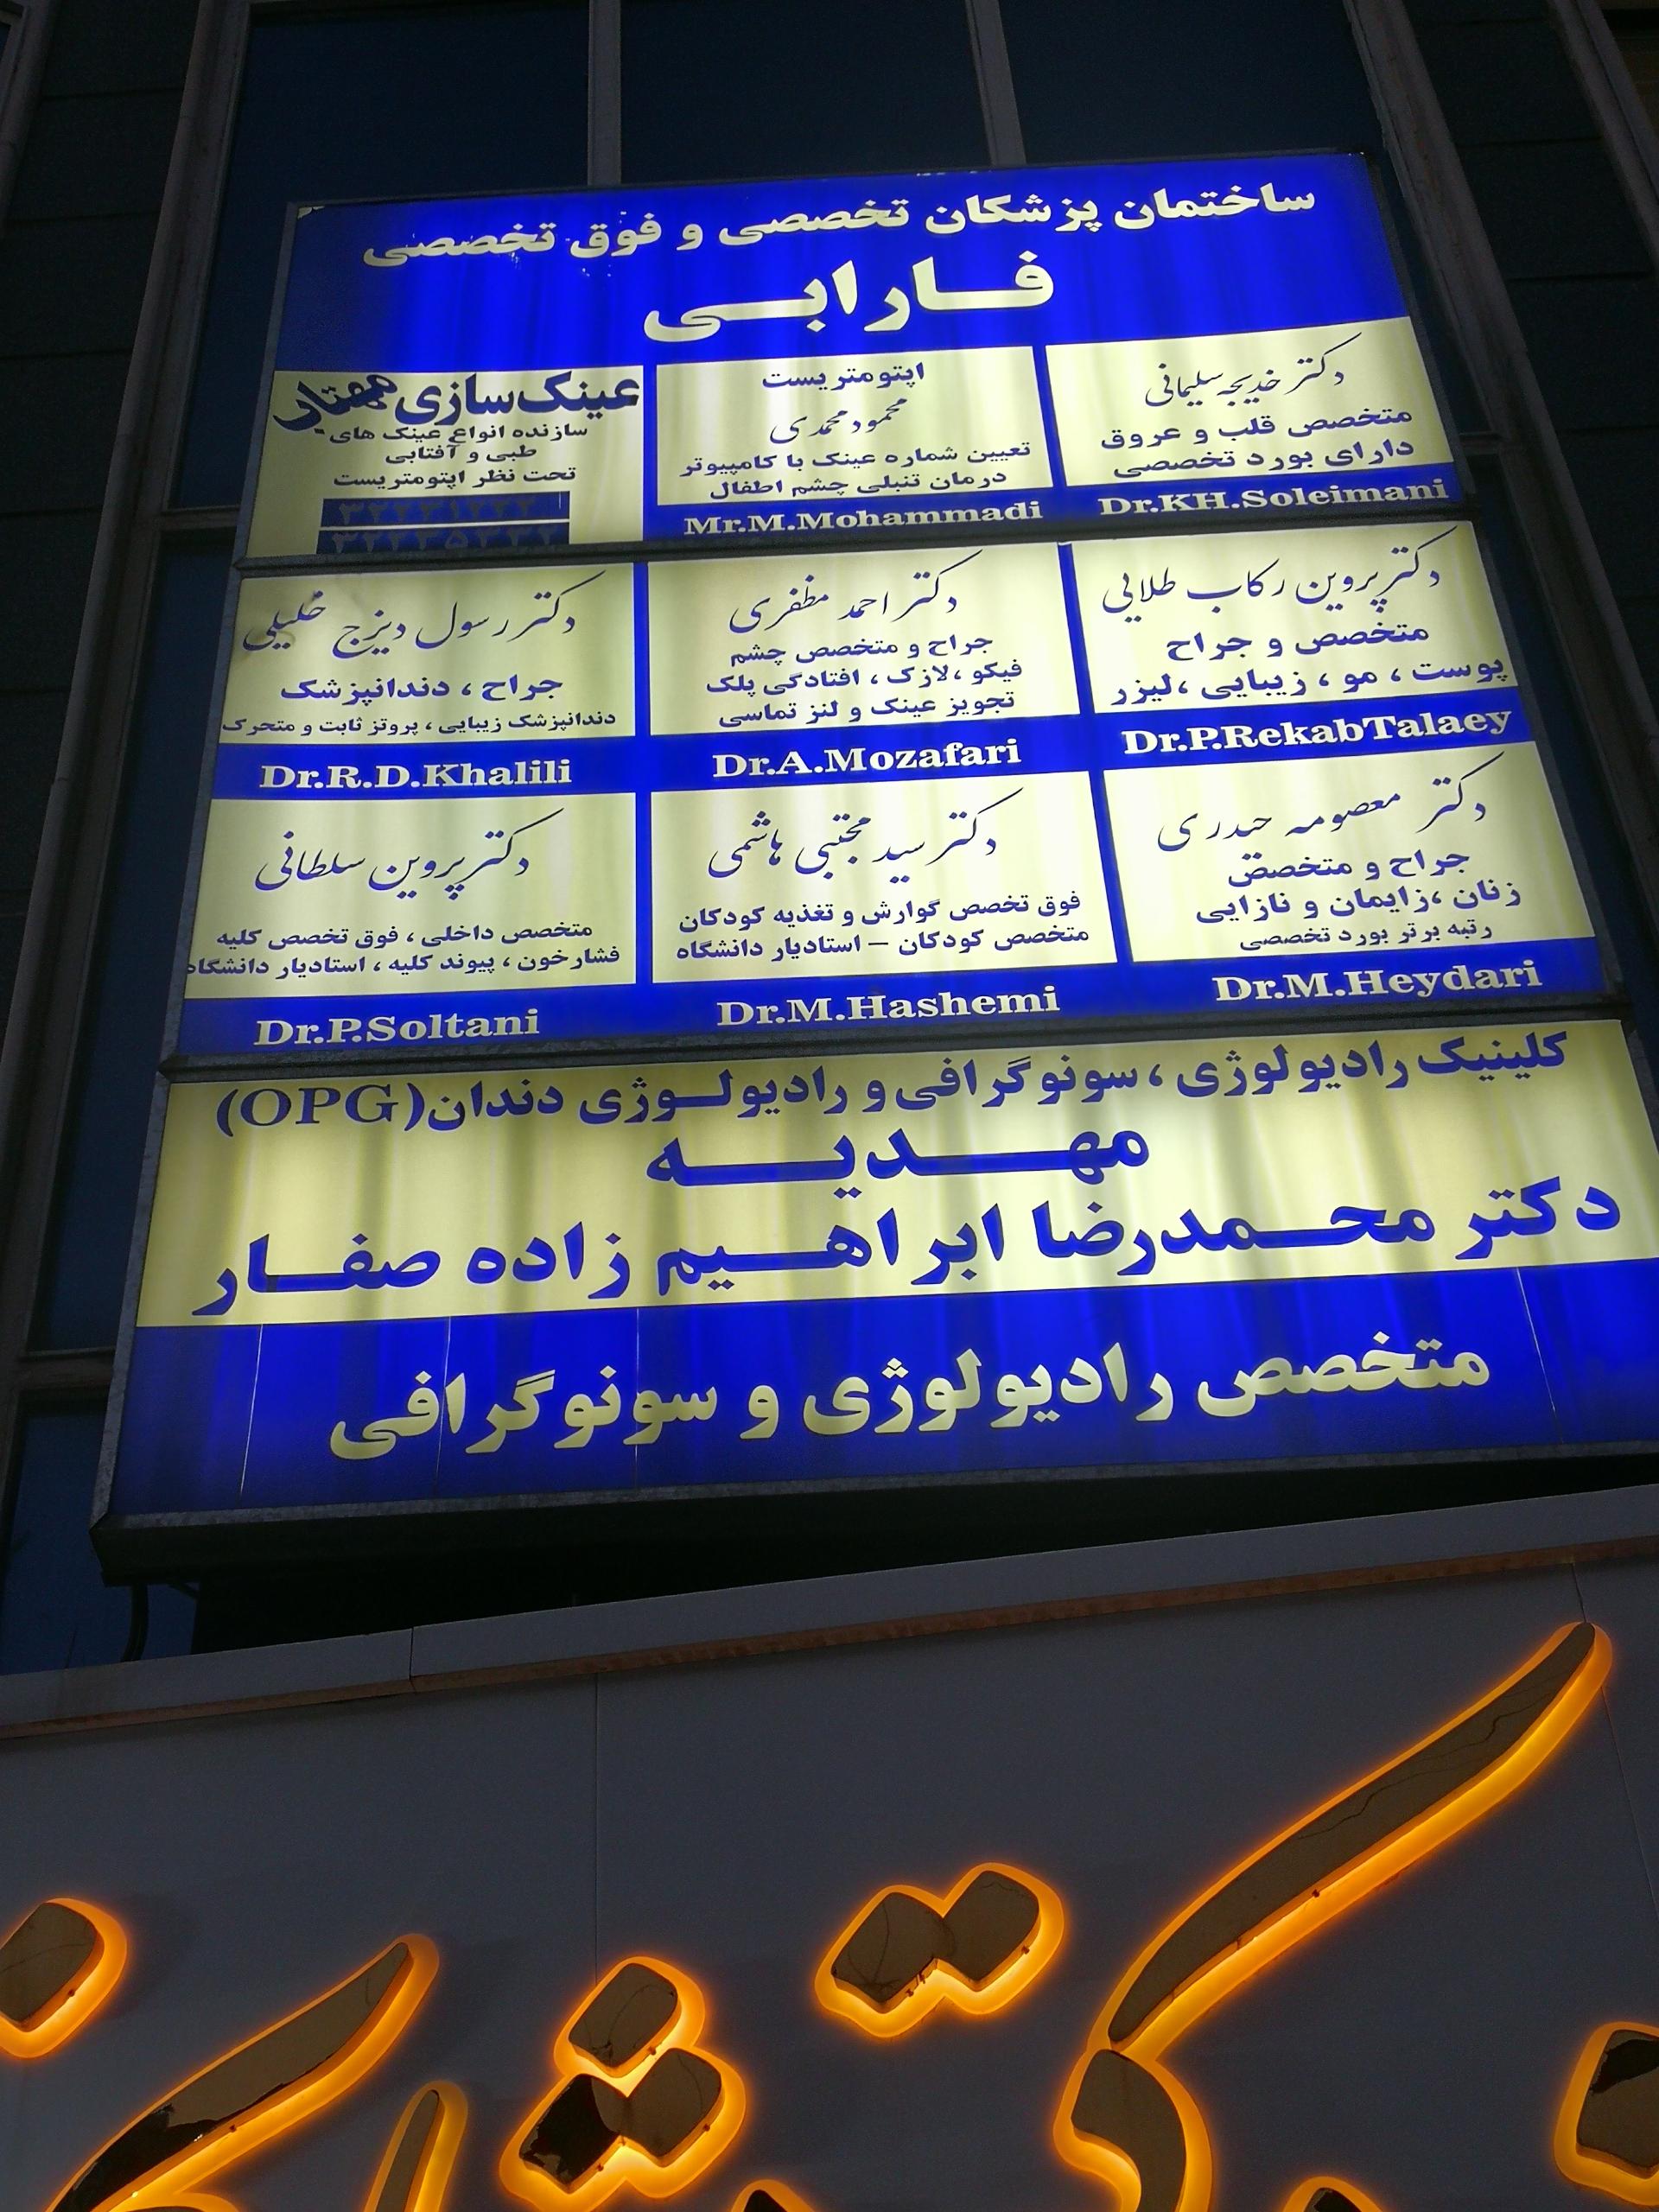 ساختمان پزشکان تخصصی و فوق تخصصی
فارابی
دکتر خدیجه سلیمانی
متخصص قلب و عروق
دارای بورد تخصصی
Dr.KH.Soleimani
اپتومتریست
محمود محمدی
تعیین شماره عینک با کامپیوتر
درمان تنبلی چشم اطفال
Mr.M.Mohammadi
عینک‌سازی مهتاب
سازنده انواع عینک های
طبی و آفتابی
تحت نظر اپتومتریست
دکتر پروین رکاب طلایی
متخصص و جراح
پوست ، مو ، زیبایی ،لیزر
Dr.P.RekabTalaey
دکتر احمد مظفری
جراح و متخصص چشم
فیکو ،لازک ، افتادگی پلک
تجویز عینک و لنز تماسی
Dr.A.Mozafari
دکتر رسول دیزج خلیلی
جراح ، دندانپزشک
دندانپزشک زیبایی ، پروتز ثابت و متحرک
Dr.R.D.Khalili
دکتر معصومه حیدری
جراح و متخصص
زنان ،زایمان و نازایی
رتبه برتر بورد تخصصی
Dr.M.Heydari
دکتر سید مجتبی هاشمی
فوق تخصص گوارش و تغذیه کودکان
متخصص کودکان – استادیار دانشگاه
Dr.M.Hashemi
دکتر پروین سلطانی
متخصص داخلی ، فوق تخصص کلیه
فشارخون ، پیوند کلیه ، استادیار دانشگاه
Dr.P.Soltani
کلینیک رادیولوژی ، سونوگرافی و رادیولوژی دندان(OPG)
مهدیه
دکتر محمدرضا ابراهیم زاده صفار
متخصص رادیولوژی و سونوگرافی